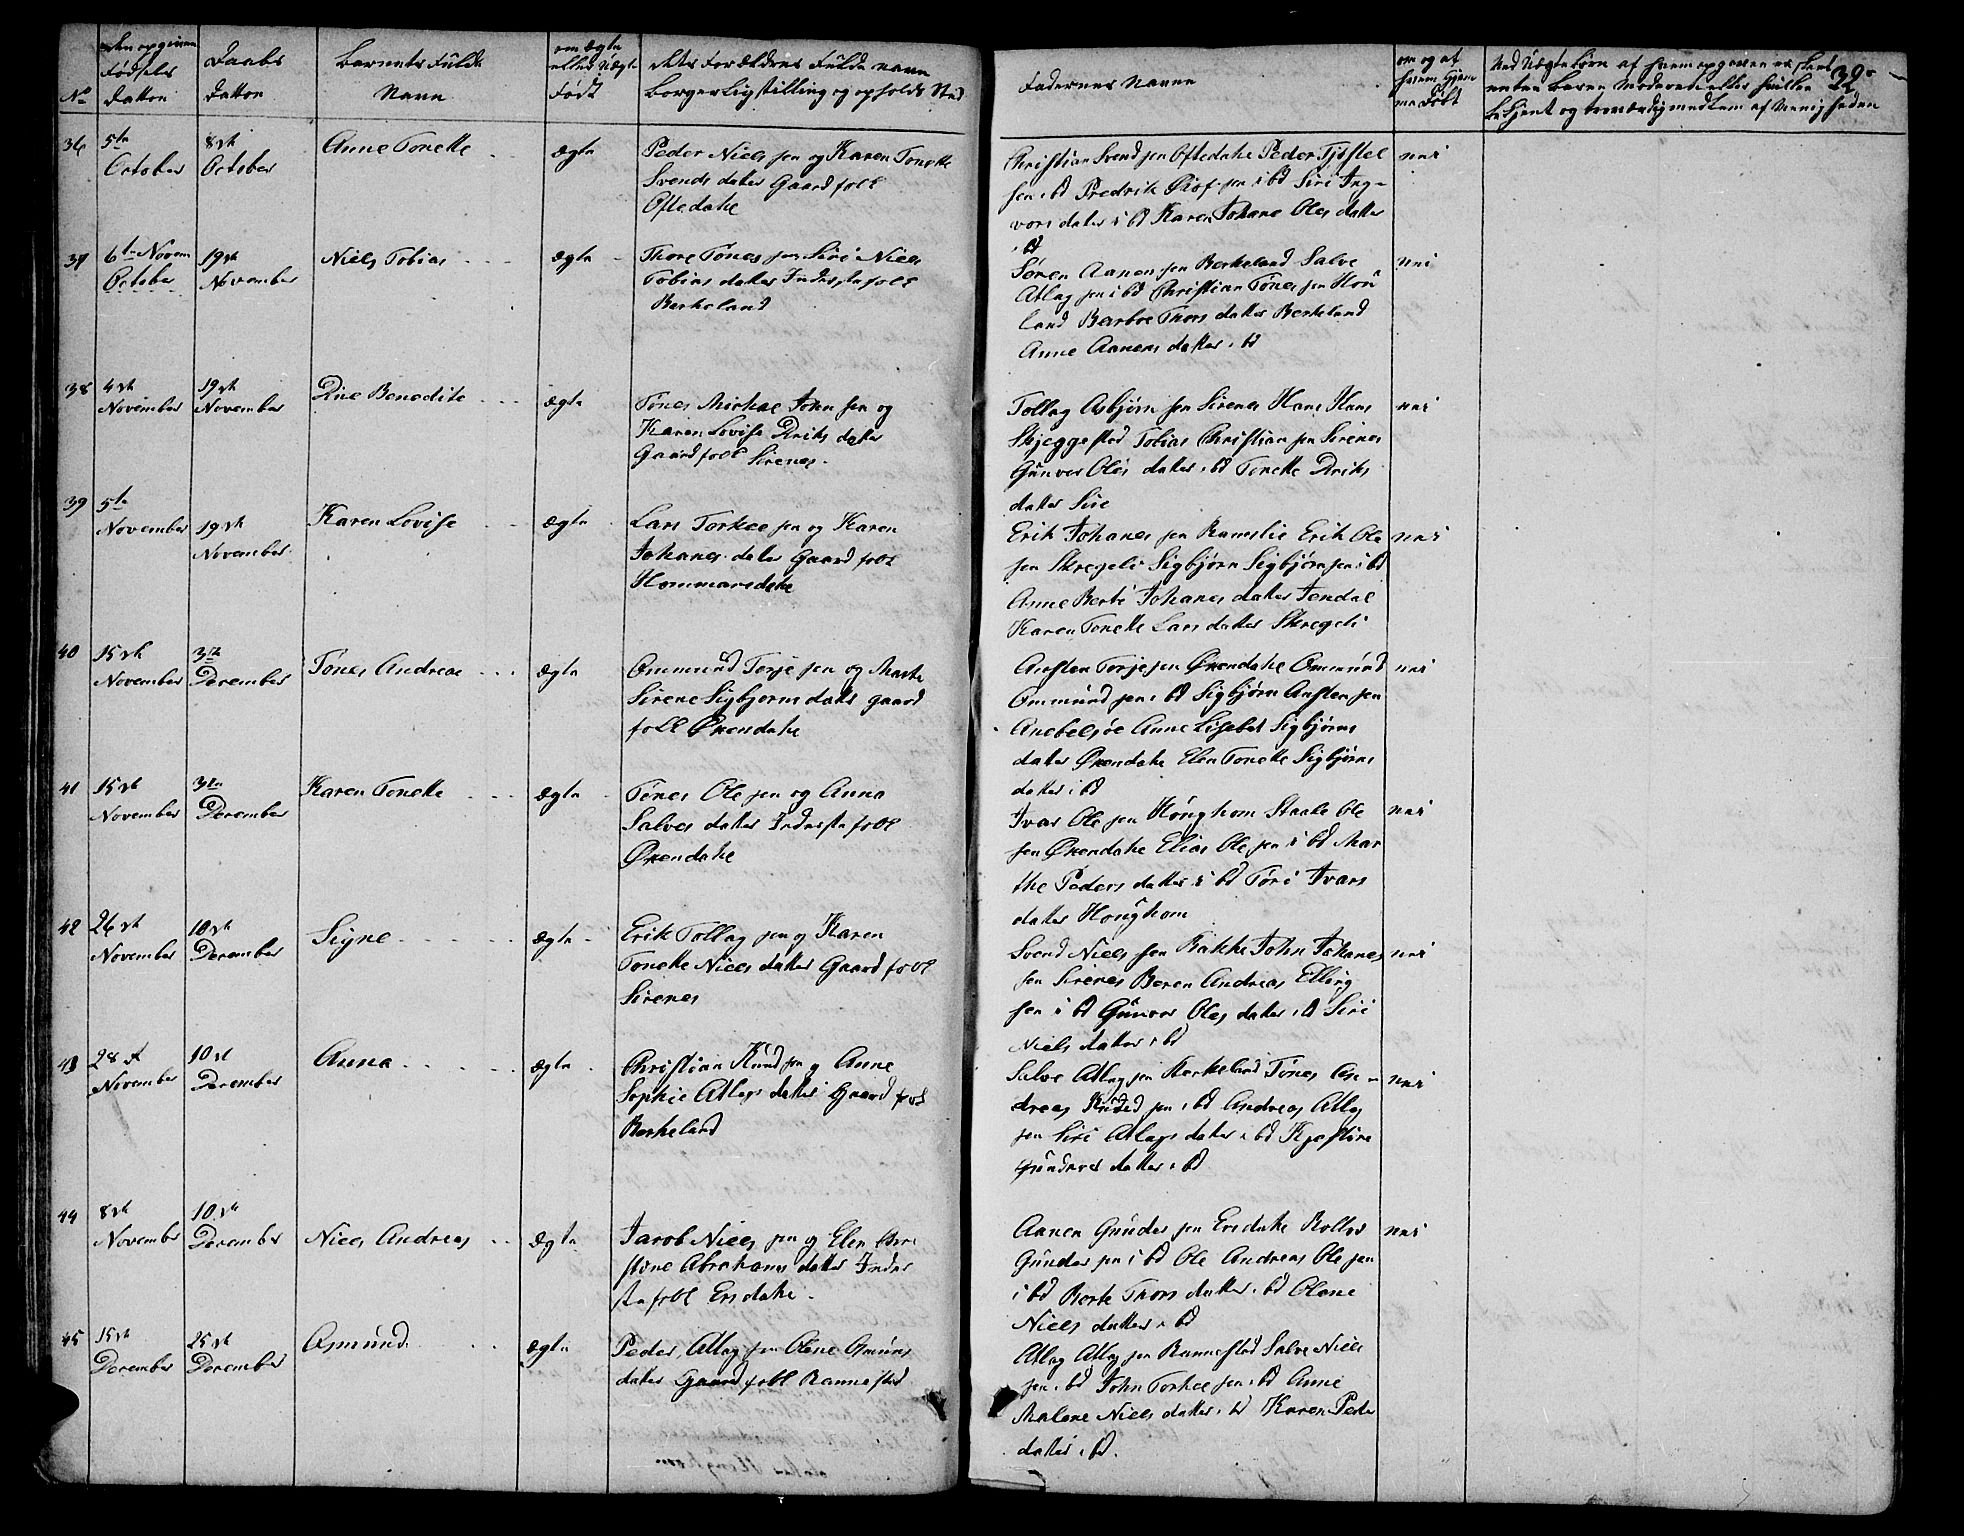 No
den opgivne
Fødsels
Datton
Daabs
Datton
Barnets Fulde
Navn
om ægte
eller Uægte
Født
dets Forældres Fulde navn
Borgerlig stilling og opholds Sted
Fadernes Navne
om og af
hvem hjem
me Døbt
32
36
5te
October
8de
October
Anne Tonette
ægte
Peder Niels sen og Karen Tonette
Svends dater Gaardfolk
Oftedahl
Christian Svend sen Oftedahl Peder Tjøstel
sen ibd Fredrik Oluf sen ibd Siri Ing-
vors dater ibd Karen Johane Oles datter
ibd
nei
37
6te Novem
October
19de
November
Niels Tobias
ægte
Thore Tønes sen Siri Niels
Tobias datter Inderstefolk
Berkeland
Søren Aanen sen Berkeland Salve
Atlag sen ibd Christian Tønes sen Hou
land Barbro Thors datter Berkeland
Anne Aanens datter ibd
nei
38
4de
November
19de
November
Dine Benedite
ægte
Tønes Michael John sen og
Karen Lovise Driks dater
Gaardfolk Sirenes.
Tollag Asbjørn sen Sirenes Hans Hans
Skjeggestad Tobias Christian sen Sirenes
Gunvor Oles datter ibd Tonette Driks
datter Sire
nei
39
5te
November
19de
November
Karen Lovise
ægte
Lars Torkel sen og Karen
Johanes dater Gaardfolk
Hommersdahl
Erik Johanes sen Ramslie Erik Ole
sen Skregeli Sigbjørn Sigbjørn sen ibd
Anne Berte Johanes datter Jendal
Karen Tonette Lars datter Skregeli
nei
40
15de
November
3die
December
Tønes Andreas
ægte
Ommund Torje sen og Marte
Sirene Sigbjorns datter gaard
folk Øxendahl
Ansten Torjesen Øxendahl Ommund
Ommund sen ibd Sigbjørn Ansten sen
Anebelsøe Anne Lisebet Sigbjørns
dater Øxendahl Elen Tonette Sigbjørns
datter ibd
nei
41
15de
November
3die
December
Karen Tonette
ægte
Tønes Ole sen og Anna
Salves datter Inderste folk
Øxendahl
Ivar Ole sen Hounghom Staale Ole
sen Øxendahl Elias Ole sen ibd Mar
the Peders datter ibd Tøri Ivars
dater Hounghom
nei
42
26de
November
10de
December
Signe
ægte
Erik Tollag sen og Karen
Tonette Niels datter Gaardfolk
Sirenes
Svend Niels sen Bakke John Johanes
sen Sirenes Beren Andreas Elling
sen ibd Gunvor Oles datter ibd Siri
Niels datter ibd
nei
43
28de
November
10de
December
Anna
ægte
Christian Knud sen og Anne
Sophie Atlags datter Gaardfolk
Berkeland
Salve Atlag sen Berkeland Tønes An-
dreas Knud sen ibd Andreas Atlag
sen Siri Atlags dater ibd Kjestine
Gunders datter ibd
nei
44
8de
November
10de
December
Niels Andreas
ægte
Jacob Niels sen og Elen Chri
stine Abrahams datter Inder
stefolk Ersdahl.
Aanen Gunder sen Ersdahl Rollev
Gunder sen ibd Ole Andreas Ole sen
ibd Berte Thors datter ibd Olene
Niels datter ibd
nei
45
15de
December
25de
December
Asmund
ægte
Peder Atlag sen Olene Omuns
dater Gaardfolk Rannestad
Atlag Atlag sen Rannestad Salve Niels
sen ibd John Torkel sen ibd Anne
Malene Niels datter ibd Karen Peder
datter ibd.